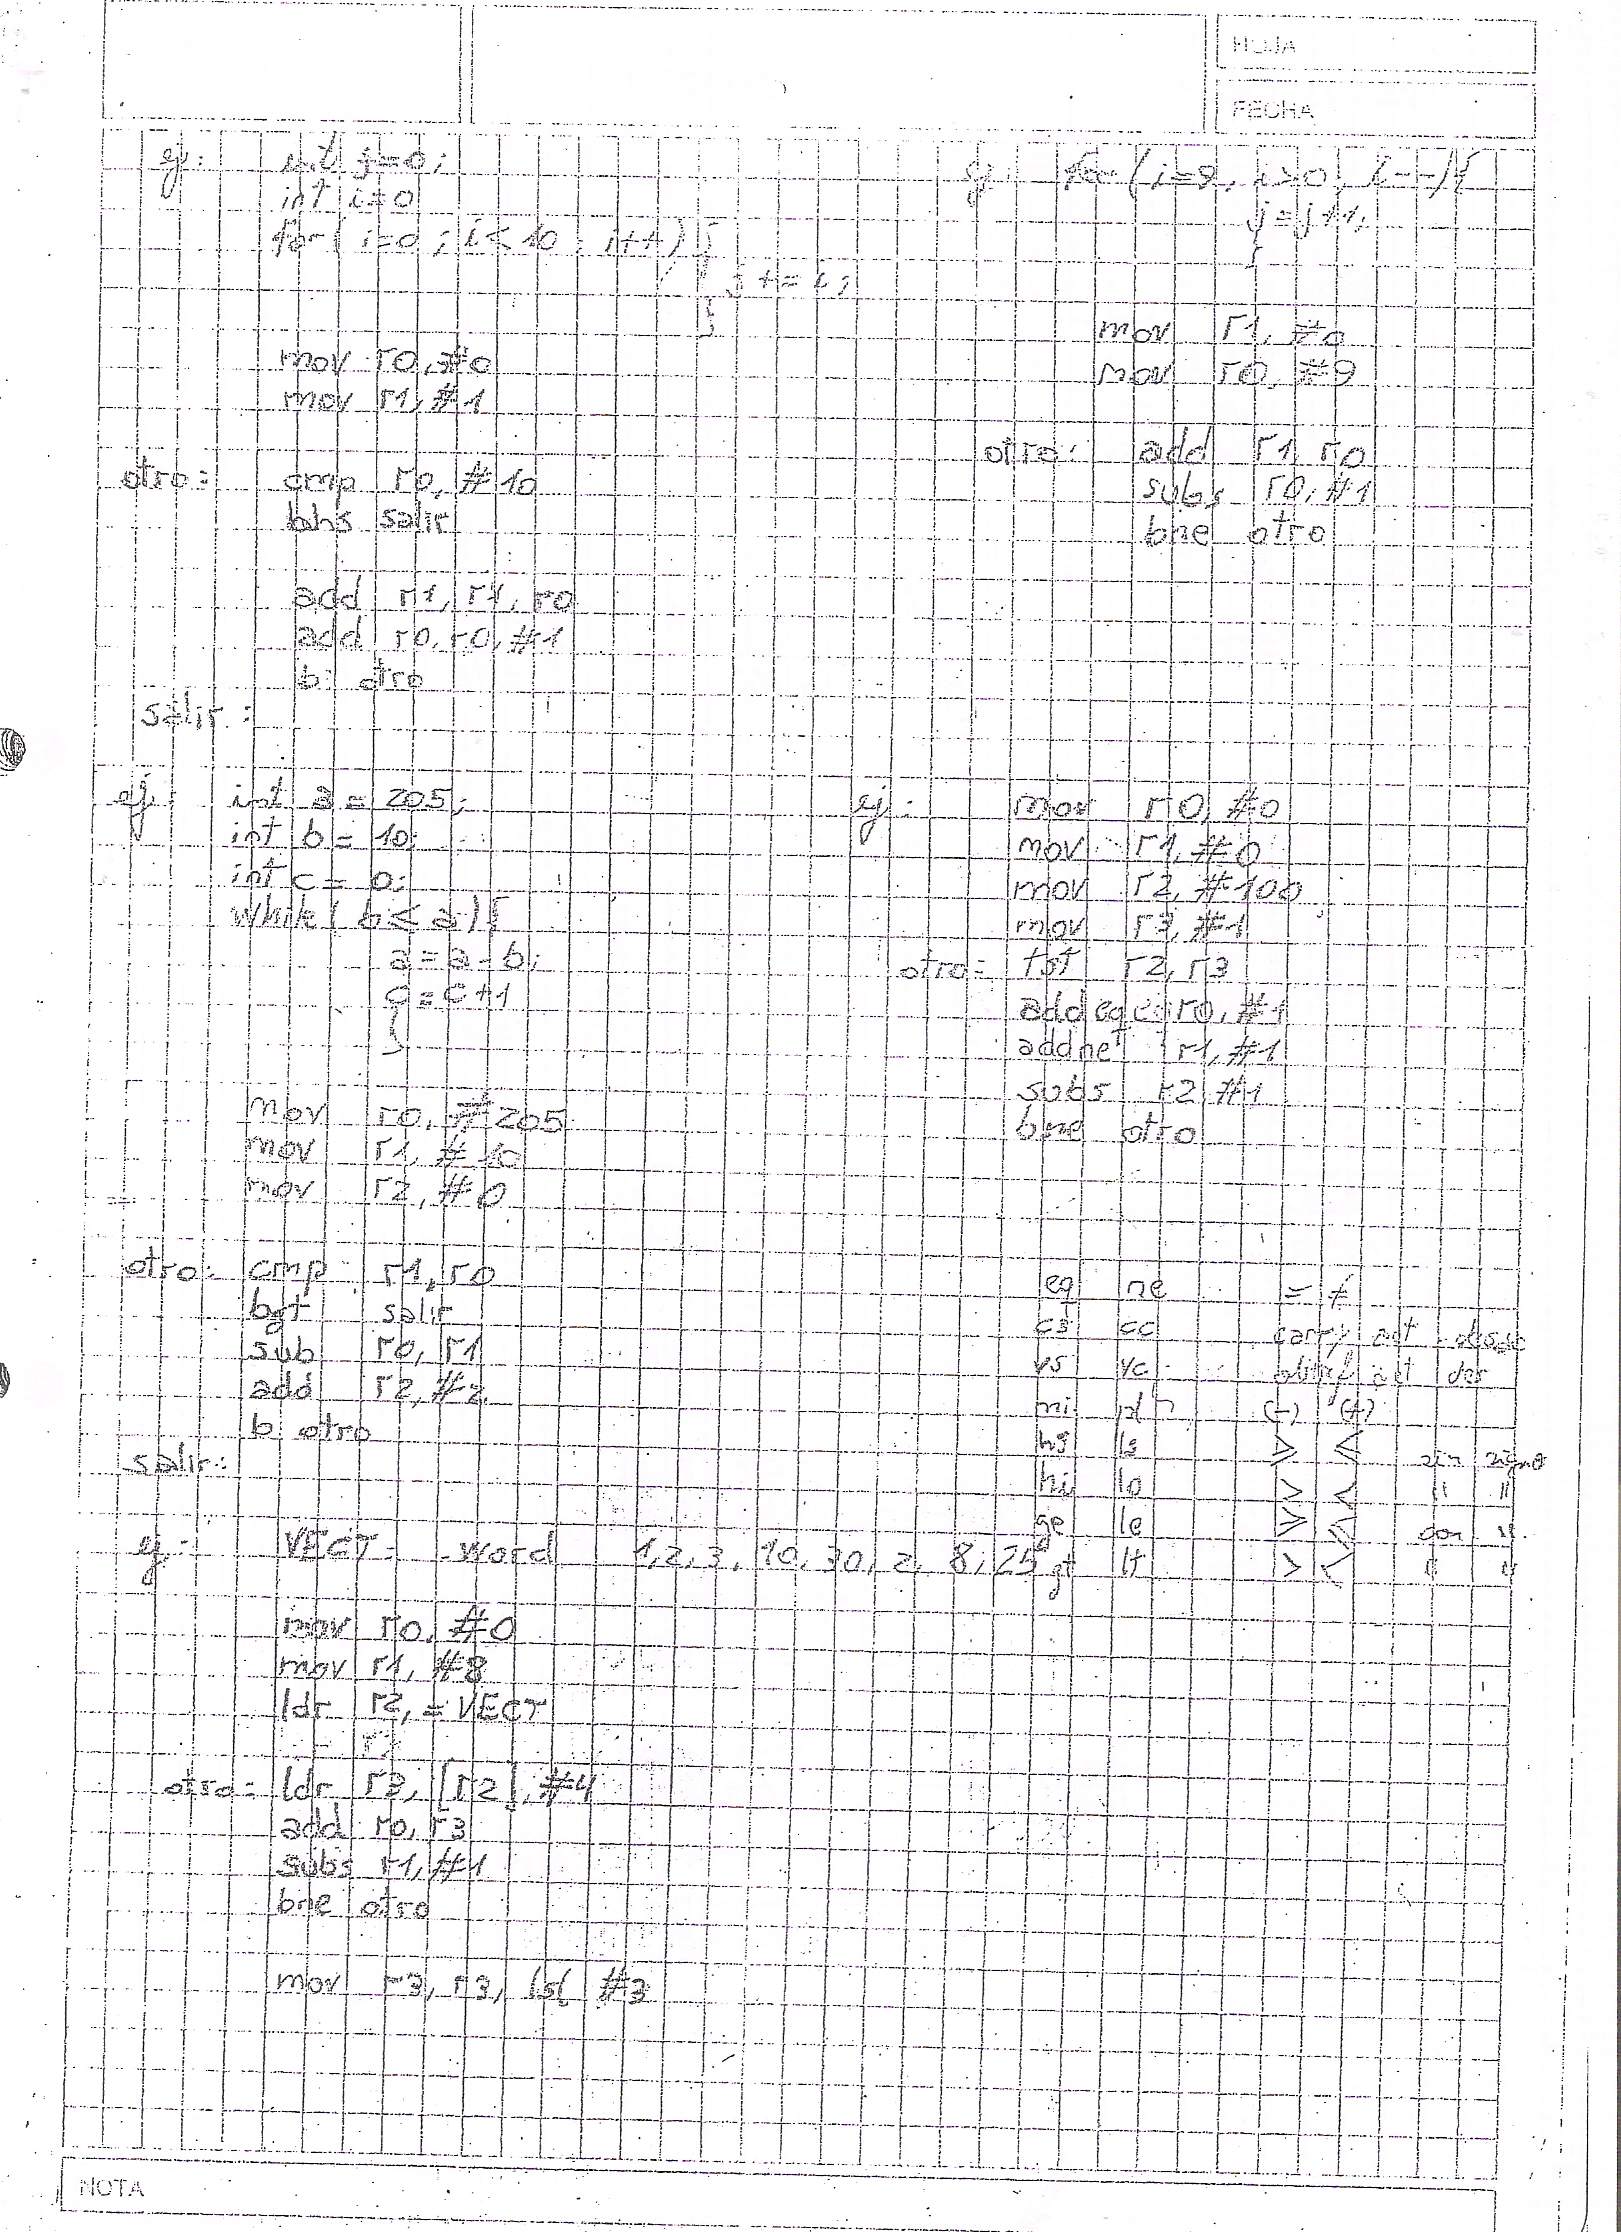 HOJA
FECHA
ej: int j=0;
int i=0
for( i=0 ; i<10 ; i++) {
j+=i;
}
mov r0, #0
mov r1, #1
otro: cmp r0, #10
bhs salir
add r1, r1, r0
add r0, r0, #1
b otro
salir:
ej: for (i=9, i>0, i--){
j=j+1;
}
mov r1, #0
mov r0, #9
otro: add r1, r0
subs r0, #1
bne otro
ej: int a = 205;
int b = 10;
int c = 0;
while( b < a ){
a=a-b;
c=c+1
}
mov r0, #205
mov r1, #10
mov r2, #0
otro: cmp r1, r0
bgt salir
sub r0, r1
add r2, #2
b otro
salir:
ej: mov r0, #0
mov r1, #0
mov r2, #100
mov r3, #1
otro: tst r2, r3
addeq r0, #1
addne r1, #1
subs r2, #1
bne otro
eq ne = ≠
cs cc carry act
vs vc act des
mi pl (-) (+)
hs ls ≥ ≤ sin signo
hi lo > < " "
ge le ≥ ≤ con "
gt lt > < " "
ej: VECT: .word 1, 2, 3, 10, 30, 2, 8, 25
mov r0, #0
mov r1, #8
ldr r2, =VECT
otro: ldr r3, [r2], #4
add r0, r3
subs r1, #1
bne otro
mov r3, r3, lsl #3
NOTA